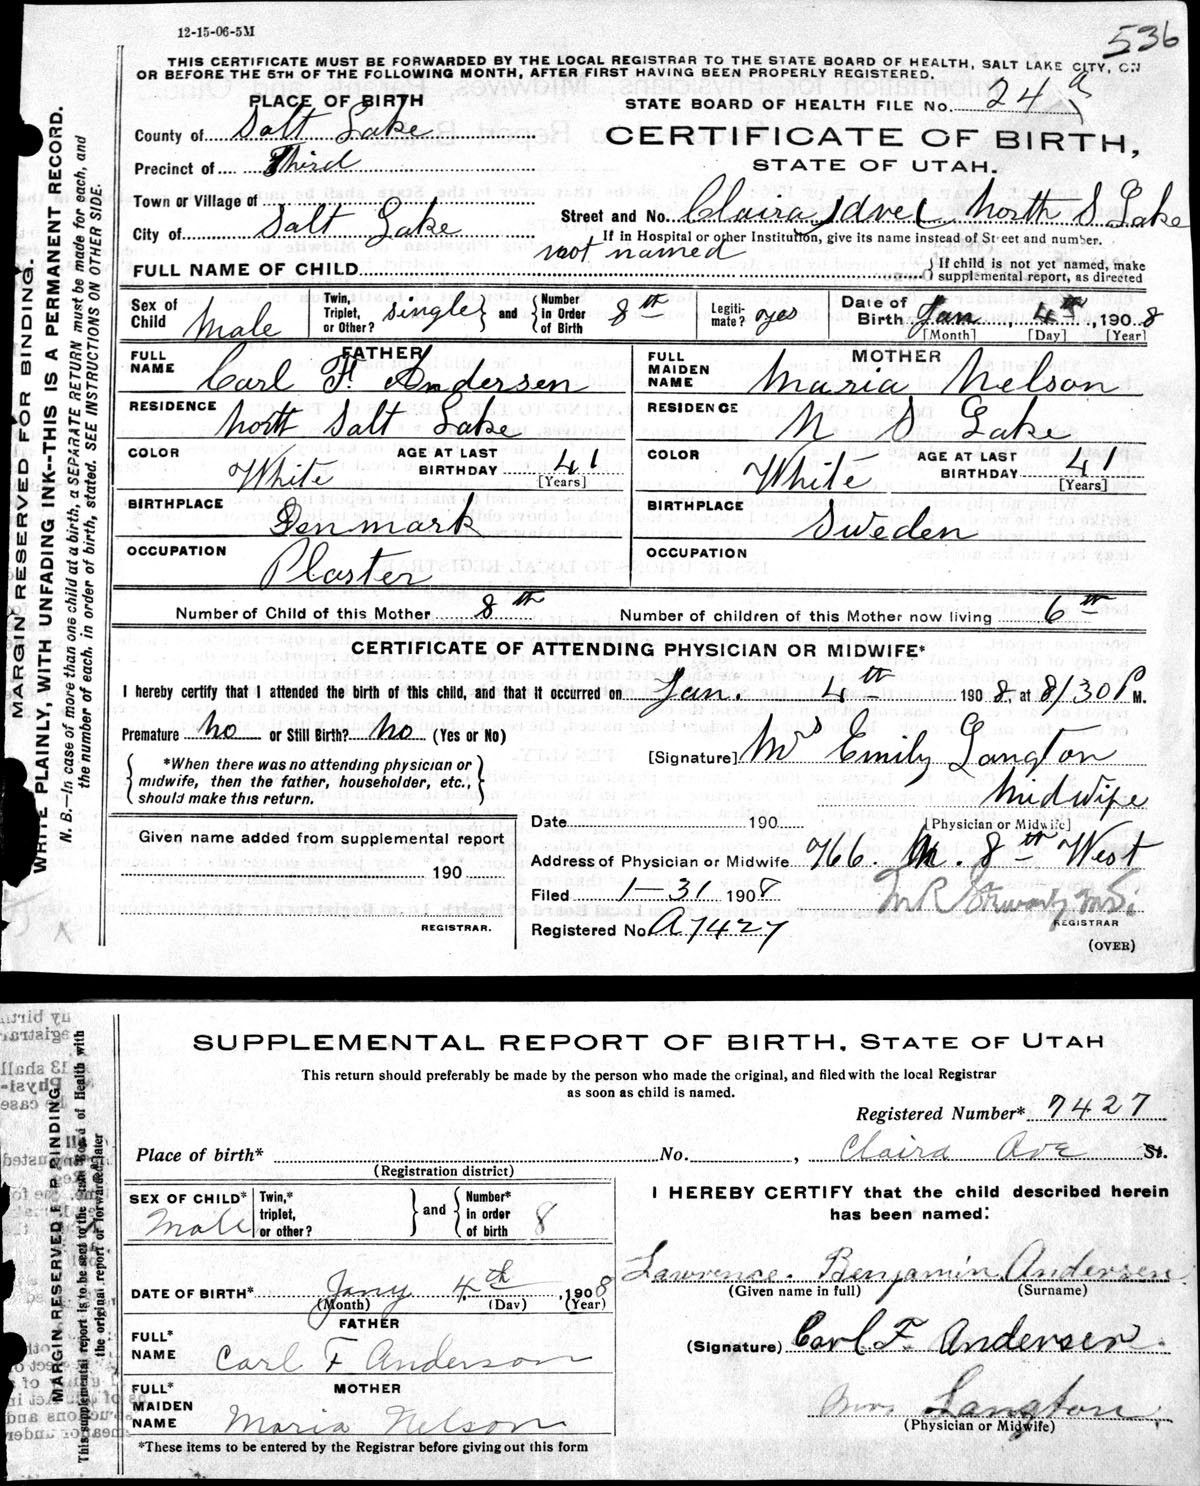 12-15-06-5M
536
THIS CERTIFICATE MUST BE FORWARDED BY THE LOCAL REGISTRAR TO THE STATE BOARD OF HEALTH, SALT LAKE CITY, ON
OR BEFORE THE 5TH OF THE FOLLOWING MONTH, AFTER FIRST HAVING BEEN PROPERLY REGISTERED.
PLACE OF BIRTH
STATE BOARD OF HEALTH FILE No. 24
County of Salt Lake
CERTIFICATE OF BIRTH,
Precinct of Third
STATE OF UTAH.
Town or Village of
Street and No. Claira Ave North S Lake
City of Salt Lake
If in Hospital or other Institution, give its name instead of Street and number.
FULL NAME OF CHILD not named
If child is not yet named, make
supplemental report, as directed
Sex of Child Male
Twin, Triplet, or Other? single and Number in Order of Birth 8th
Legiti-mate? yes
Date of Birth Jan 4th, 1908
[Month] [Day] [Year]
FATHER
FULL NAME Carl F. Andersen
MOTHER
FULL MAIDEN NAME Maria Nelson
RESIDENCE North Salt Lake
RESIDENCE N S Lake
COLOR White AGE AT LAST BIRTHDAY 41 [Years]
COLOR White AGE AT LAST BIRTHDAY 41 [Years]
BIRTHPLACE Denmark
BIRTHPLACE Sweden
OCCUPATION Plaster
OCCUPATION
Number of Child of this Mother 8th
Number of children of this Mother now living 6th
CERTIFICATE OF ATTENDING PHYSICIAN OR MIDWIFE*
I hereby certify that I attended the birth of this child, and that it occurred on Jan. 4th 1908, at 8/30 P M.
Premature no or Still Birth? no (Yes or No)
[Signature] Mrs Emily Langton
*When there was no attending physician or
midwife, then the father, householder, etc.,
should make this return.
Midwife
[Physician or Midwife]
Date 190
Given name added from supplemental report
190
REGISTRAR.
Address of Physician or Midwife 766. N. 8th West
Filed 1-31 1908
Registered No A7427
REGISTRAR
(OVER)
MARGIN RESERVED FOR BINDING.
WRITE PLAINLY, WITH UNFADING INK--THIS IS A PERMANENT RECORD.
N. B.—In case of more than one child at a birth, a SEPARATE RETURN must be made for each, and
the number of each, in order of birth, stated. SEE INSTRUCTIONS ON OTHER SIDE.
SUPPLEMENTAL REPORT OF BIRTH, STATE OF UTAH
This return should preferably be made by the person who made the original, and filed with the local Registrar
as soon as child is named.
Registered Number* 7427
Place of birth* No. , Claird Ave St.
(Registration district)
SEX OF CHILD* Male
Twin,* triplet, or other? and Number* in order of birth 8
I HEREBY CERTIFY that the child described herein
has been named:
Lawrence. Benjamin Andersen
(Given name in full) (Surname)
DATE OF BIRTH* Jany 4th, 1908
(Month) (Day) (Year)
FATHER
FULL* NAME Carl F Anderson
(Signature) Carl. F. Andersen.
MOTHER
FULL* MAIDEN NAME Maria Nelson
Mrs Langton
(Physician or Midwife)
*These items to be entered by the Registrar before giving out this form
MARGIN RESERVED FOR BINDING.
This supplemental report is to be sent to the State Board of Health with
the original report or forwarded later